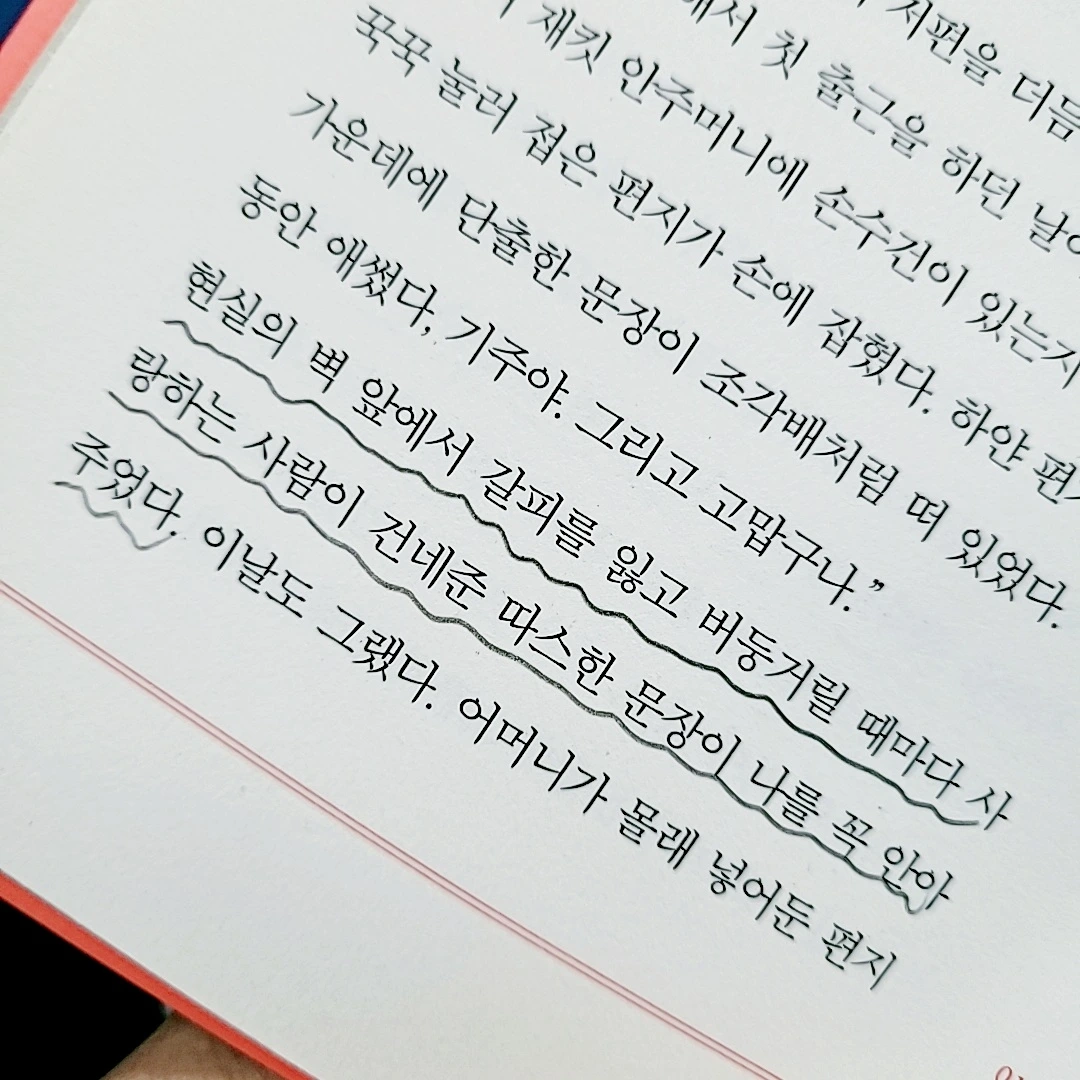 저편을 더듬
첫 출근을 하던
재킷 안주머니에 손수건이 있는지
꾹꾹 눌러 접은 편지가 손에 잡혔다. 하얀
가운데에 단출한 문장이 조각배처럼 떠 있었다.
동안 애썼다, 기주야. 그리고 고맙구나.”
현실의 벽 앞에서 갈피를 잃고 버둥거릴 때마다 사
랑하는 사람이 건네준 따스한 문장이 나를 꼭 안아
주었다. 이날도 그랬다. 어머니가 몰래 넣어둔 편지